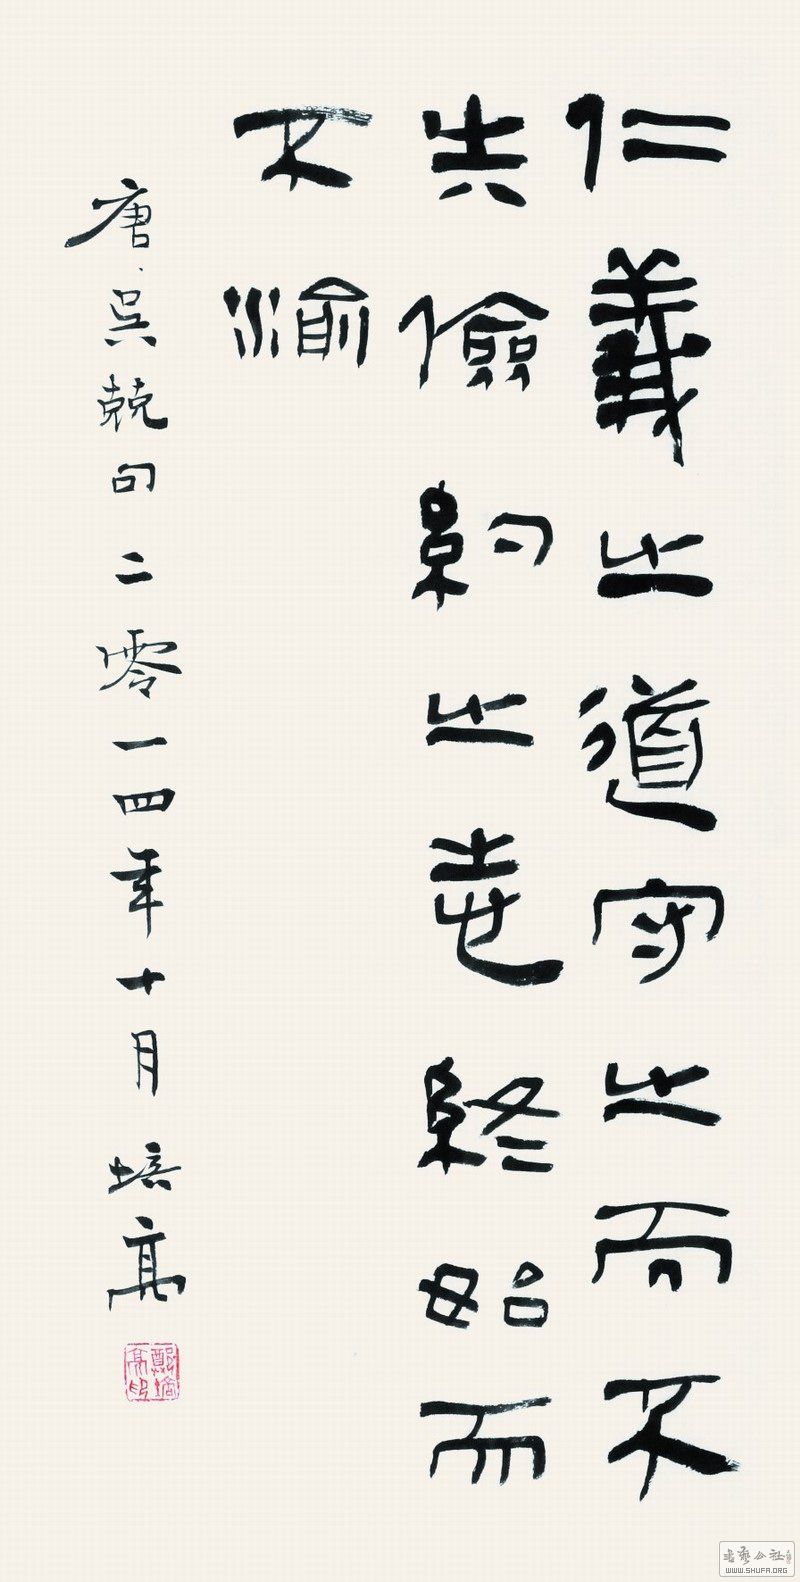 仁義之道守之而不
失儉約之志終始而
不渝
唐、吳兢句二零一四年十月培高
鄭培高印
书艺公社
WWW.SHUFA.ORG